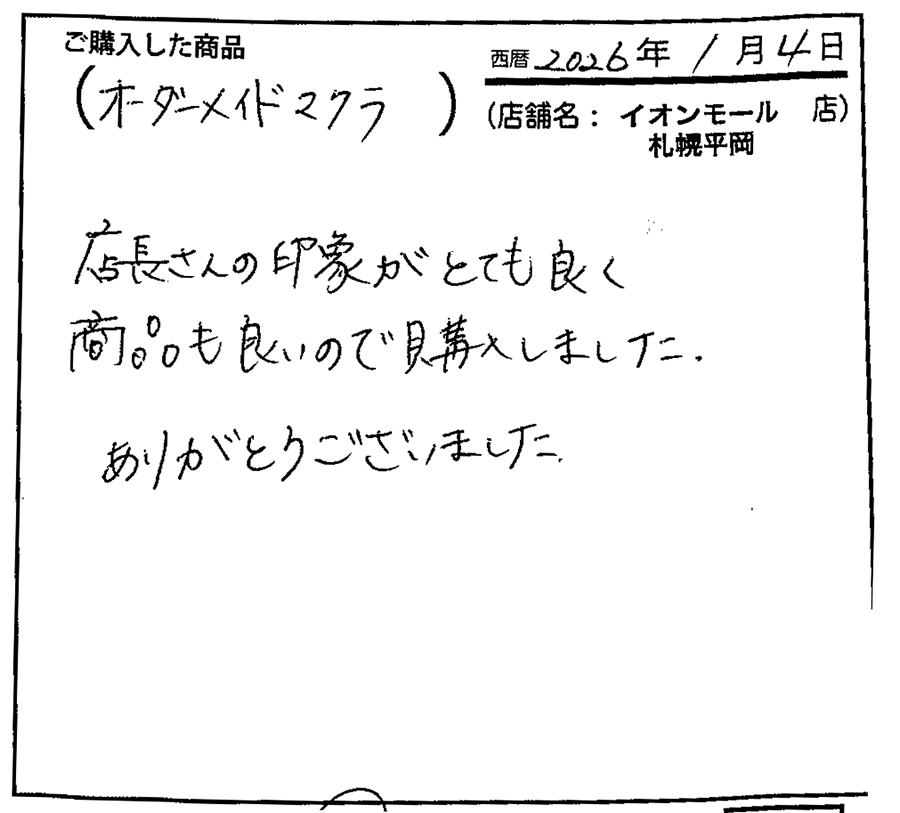 ご購入した商品
西暦 2026年 1月4日
(オーダーメイドマクラ)
(店舗名: イオンモール 店)
札幌平岡
店長さんの印象がとても良く
商品も良いので購入しました.
ありがとうございました.